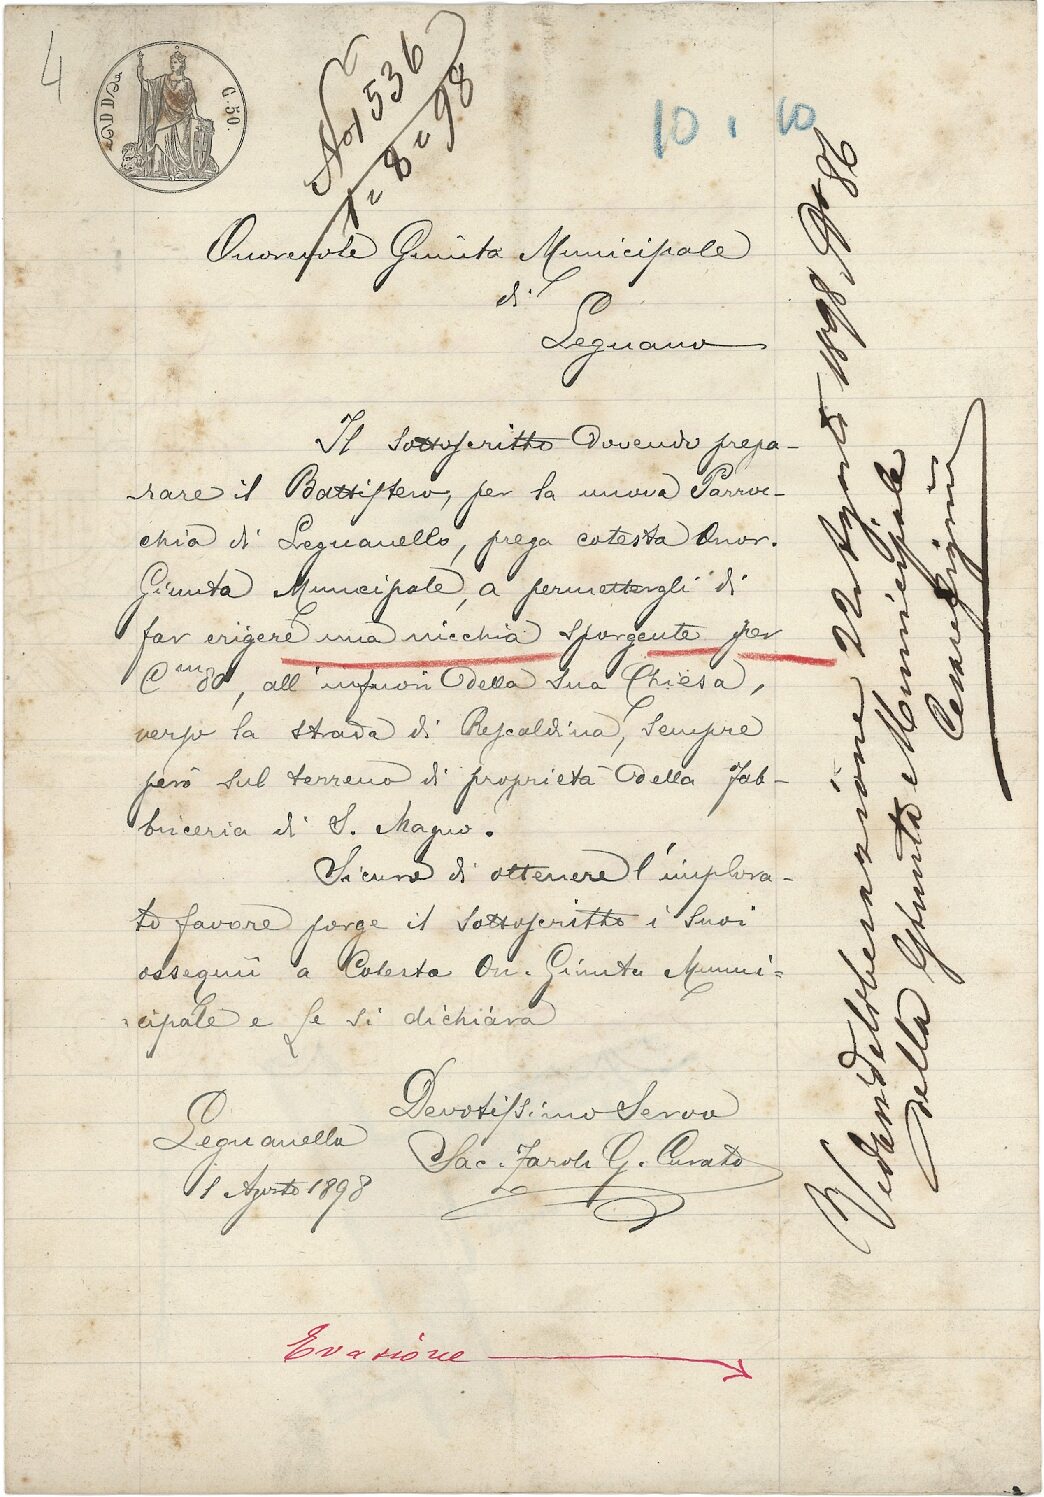 4
C. 50.
No 1536
1 = 8 = 98
10 . 10
Onorevole Giunta Municipale
di
Legnano
Il sottoscritto dovendo prepa-
rare il Battistero, per la nuova Parroc-
chia di Legnanello, prega cotesta Onor.
Giunta Municipale, a permettergli di
far erigere una nicchia sporgente per
Cm 80, all'infuori della sua Chiesa,
verso la strada di Rescaldina, sempre
però sul terreno di proprietà della Fab-
briceria di S. Magno.
Sicuro di ottenere l'implora-
to favore porge il sottoscritto i suoi
ossequii a Cotesta On. Giunta Munni-
cipale e Le si dichiara
Devotissimo Servo
Legnanello
Sac. Jaroli G. Curato
1 Agosto 1898
Evasione
Vedasi deliberazione 22 Agosto 1898 No 86
della Giunta Municipale